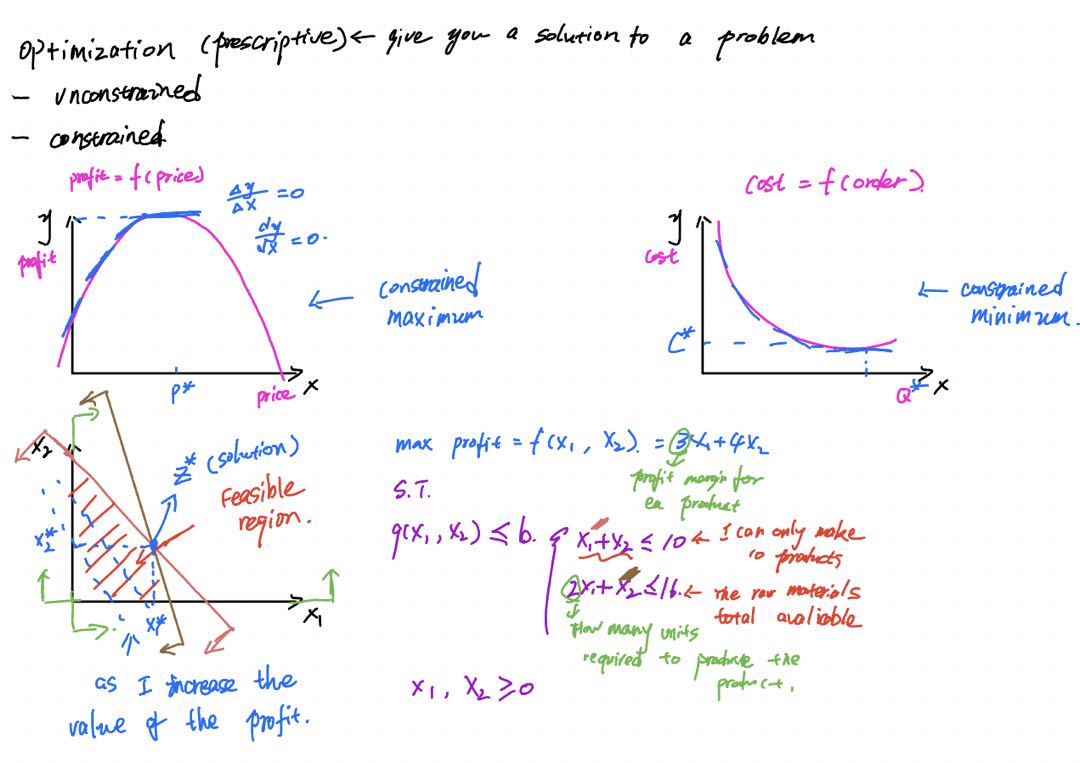 Optimization (prescriptive) ← give you a solution to a problem
- unconstrained
- constrained
profit = f(price)
Δy/Δx = 0
dy/dx = 0.
y
profit
← constrained
maximum
p*
price
x
cost = f(order).
y
cost
← constrained
minimum.
C*
Q*
x
x2
Z* (solution)
Feasible
region.
x2*
x1*
x1
as I increase the
value of the profit.
max profit = f(x1, x2) = 3x1 + 4x2
profit margin for
ea product
S.T.
g(x1, x2) ≤ b.
x1 + x2 ≤ 10 ← I can only make
10 products
2x1 + x2 ≤ 16. ← the raw materials
total avaliable
How many units
required to produce the
product.
x1, x2 ≥ 0